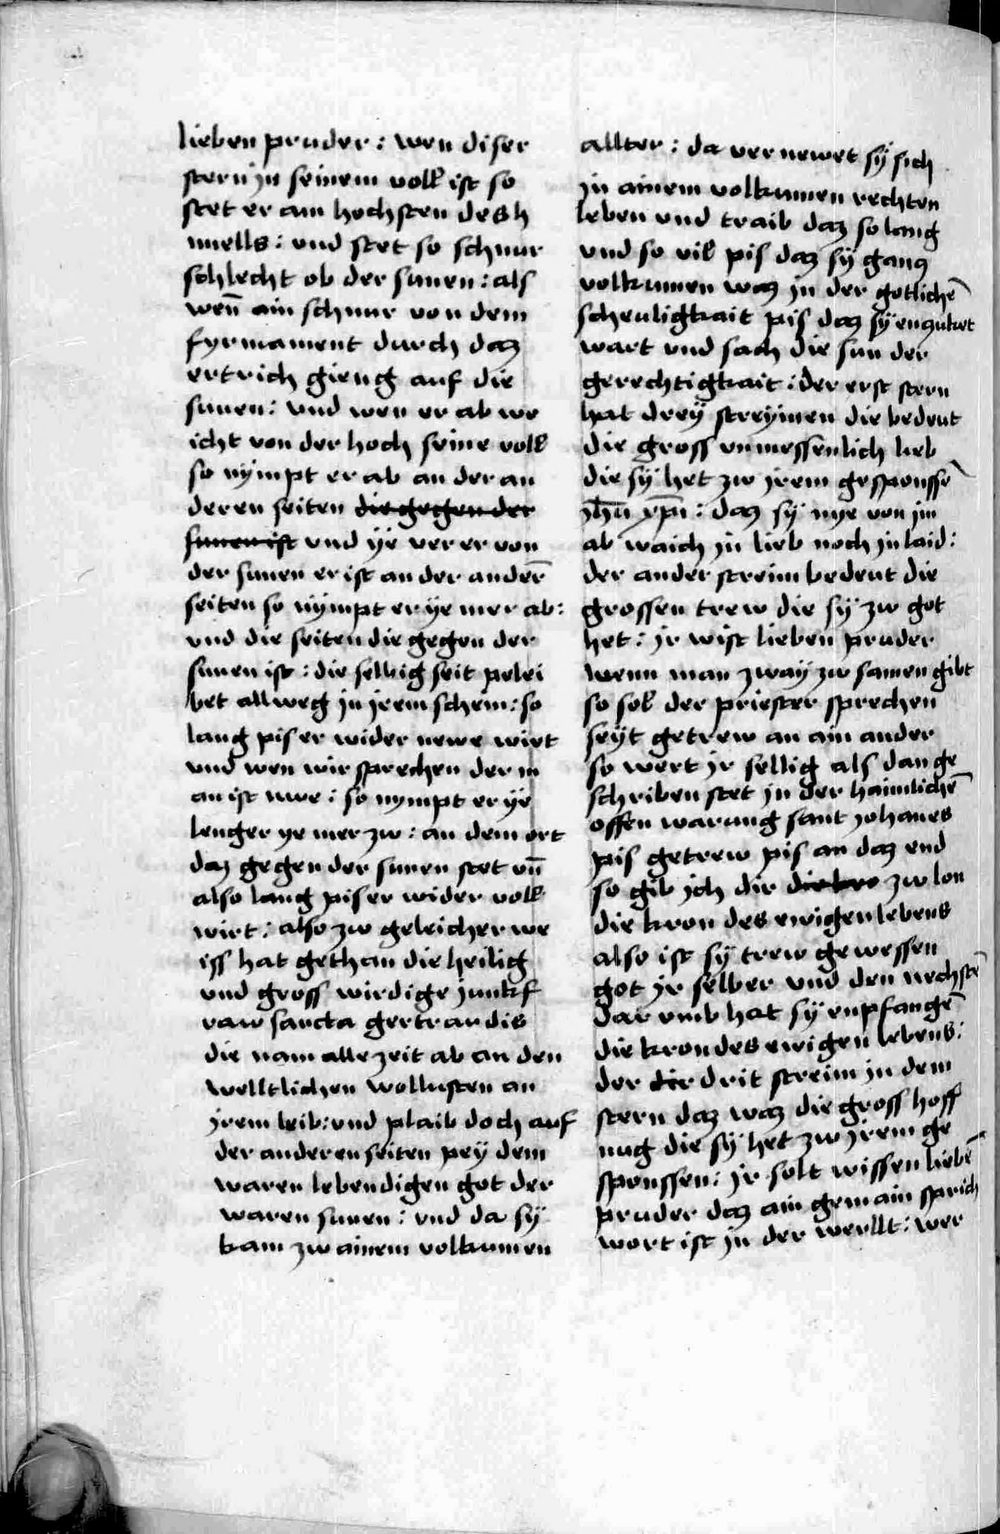 lieben pruder : wen diser
stern jn seinem voll ist so
stet er am hochsten des h
mells : vnd stet so schnur
schlecht ob der sunen : als
wen̄ ain schnur von dem
fyrmament durch daz
ertrich gieng auf die
sunen : vnd wen er ab we
icht von der hoch seine voll
so nÿmpt er ab an der an
deren seiten die gegen der
sunen ist vnd ÿe verer von
der sunen er ist an der anderē
seiten so nÿmpt er ÿe mer ab :
vnd die seiten die gegen der
sunen ist : die selbig seit pelei
bet allweg jn jrem schein : so
lang pis er wider newe wirt
vnd wen wir sprechen der m
an ist nwe : so nympt er ÿe
lenger ye mer zw : an dem ort
daz gegen der sunen stet vn̄
also lang pis er wider voll
wirt : also zw geleicher we
iss hat gethan die heilig
vnd gross wirdige junkf
raw sancta gertraudis
die nam alle zeit ab an den
welltlichen wollusten an
jrem leib : vnd plaib doch auf
der anderen seiten pey dem
waren lebendigen got der
waren sunen : vnd da sÿ
kam zw ainem volkumen
allter : da vernewet sÿ sich
jn ainem volkumen rechten
leben vnd traib daz so lang
vnd so vil pis daz sÿ gancz
volkumen waz jn der gotlichē
scheuligkait pis daz sÿ enzuket
wart vnd sach die sun der
gerechtigkait : der erst stern
hat dreÿ streÿmen die bedeut
die gross vnmessenlich lieb
die sÿ het zw jrem gesponssē
jhm̄ xp̄m : daz sÿ nye von jm
ab waich jn lieb noch jn laid :
der ander streim bedeut die
grossen trew die sÿ zw got
het : jr wist lieben pruder
wenn man zway zw samen gibt
so sol der priester sprechen
seÿt getrew an ain ander
so wert jr sellig als dan ge
schriben stet jn der haimlichē
offenwarung sant johanes
pis getrew pis an daz end
so gib jch dir die kro zw lon
die kron des ewigen lebens
also ist sÿ trew gewessen
got jr selber vnd den nechstē
dar vmb hat sÿ enpfangē
die kron des ewigen lebens :
der der drit streim jn dem
stern daz waz die gross hoff
nug die sÿ het zw jrem ge
sponssen : jr solt wissen liebē
pruder daz ain gemain sprich
wort ist jn der werllt : wer